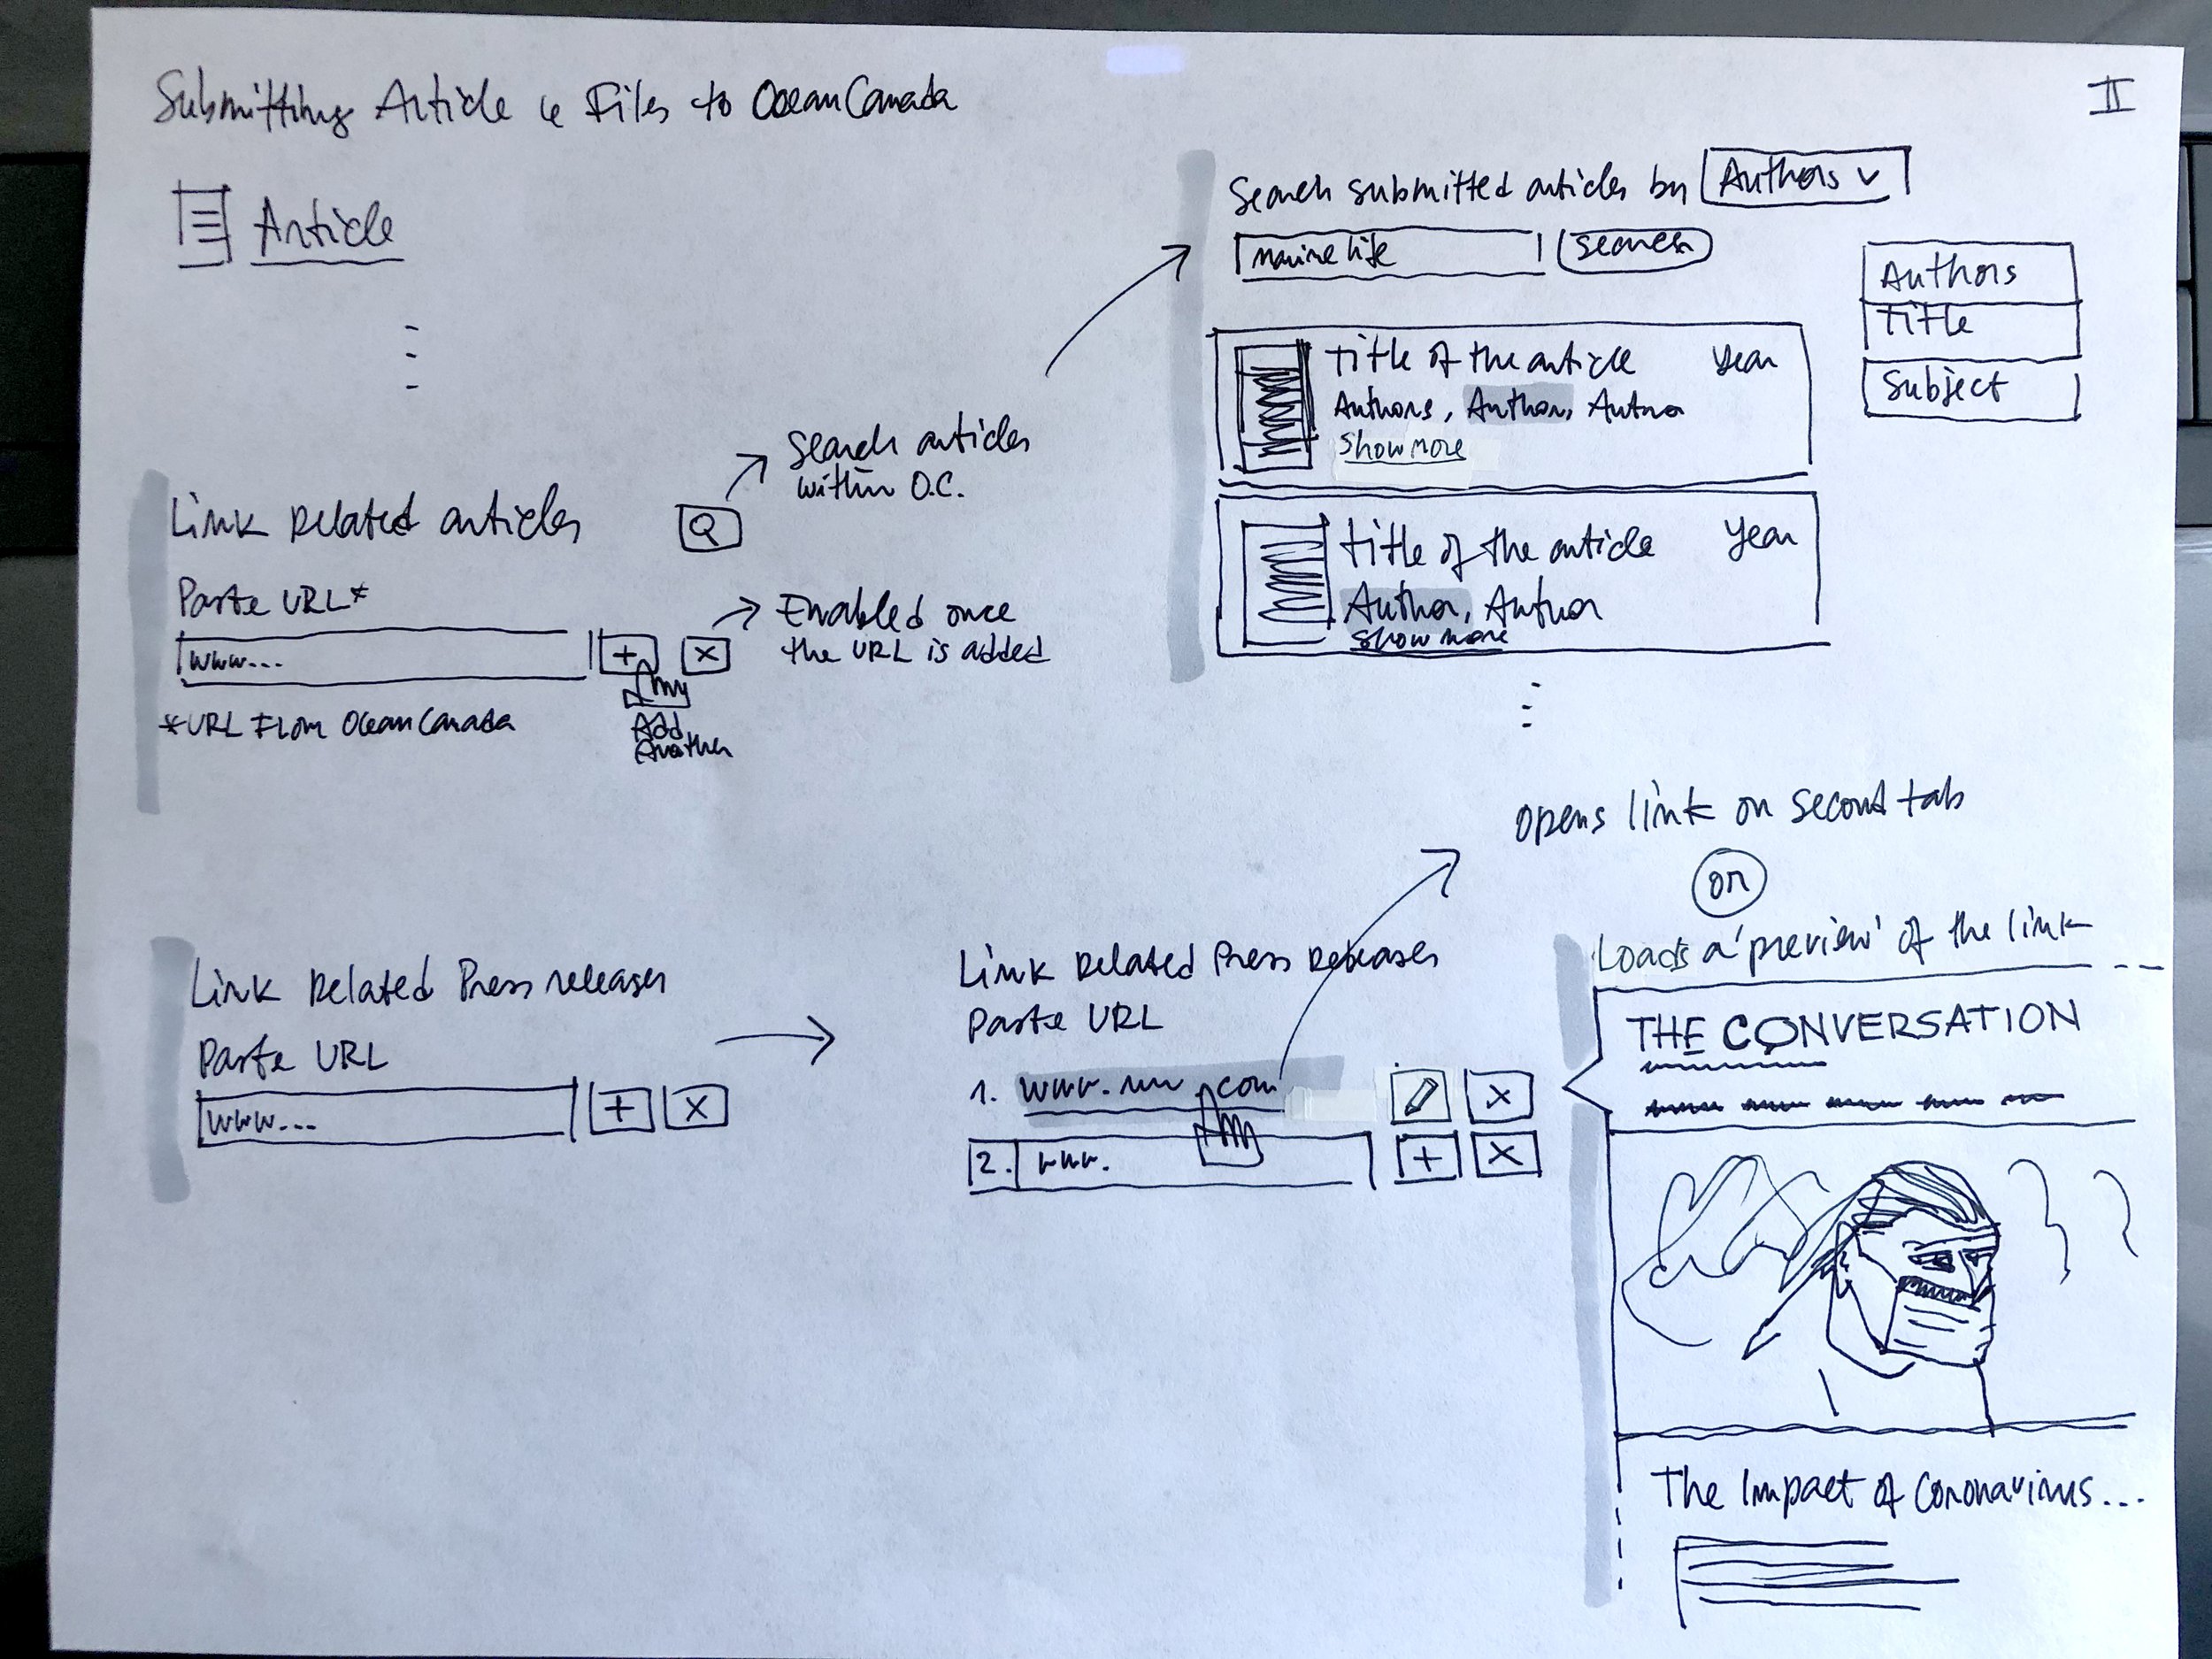 Submitting Article & Files to OceanCanada
II
Article
Link Related articles
Search articles
within O.C.
Paste URL*
www...
+
x
Enabled once
the URL is added
Add
Another
*URL From OceanCanada
Search submitted articles by
Authors
marine life
search
Authors
Title
Subject
Title of the article
Year
Authors, Author, Author
Show more
Title of the article
Year
Author, Author
Show more
Link Related Press releases
Paste URL
www...
+
x
Link Related Press Releases
Paste URL
1. www. .com
x
2. www.
+
x
opens link on second tab
or
Loads a 'preview' of the link
THE CONVERSATION
The Impact of Coronavirus...